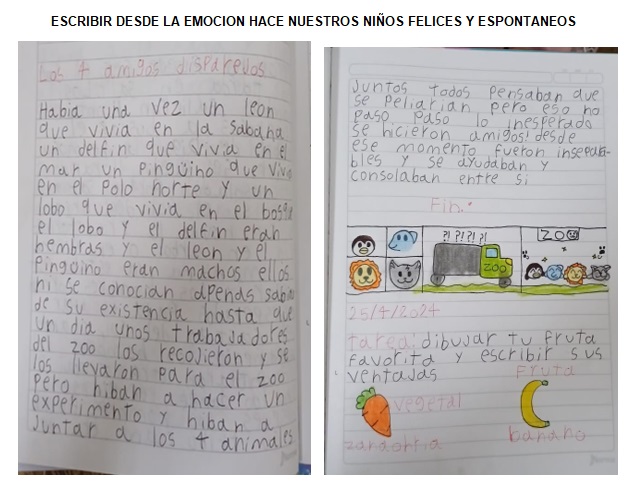 ESCRIBIR DESDE LA EMOCION HACE NUESTROS NIÑOS FELICES Y ESPONTANEOS
Los 4 amigos disparejos
Habia una vez un leon
que vivia en la sabana
un delfin que vivia en el
mar un pingüino que vivi
en el polo norte y un
lobo que vivia en el bosqu
el lobo y el delfin eran
hembras y el leon y el
pinguino eran machos ellos
ni se conocian apenas sabia
de su existencia hasta que
un dia unos trabajadores
del zoo los recojieron y se
los llevaron para el zoo
pero hiban a hacer un
experimento y hiban a
juntar a los 4 animales
juntos todos pensaban que
se peliarian pero eso no
paso paso lo inesperado
se hicieron amigos! desde
ese momento fueron insepara-
bles y se ayudaban y
consolaban entre si
Fin.
?! ?! ?! ?!
ZOO
ZOO
25/4/2024
tarea: dibujar tu fruta
favorita y escribir sus
ventajas
Fruta
vegetal
zanaohria
banano